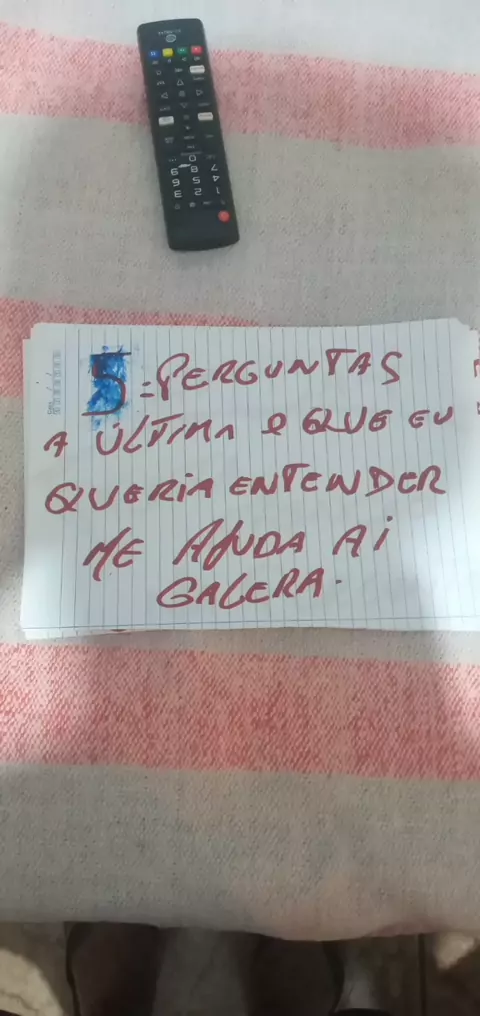 5=PERGUNTAS
A ÚLTIMA e QUE EU
QUERIA ENTENDER
ME AJUDA AI
GALERA.